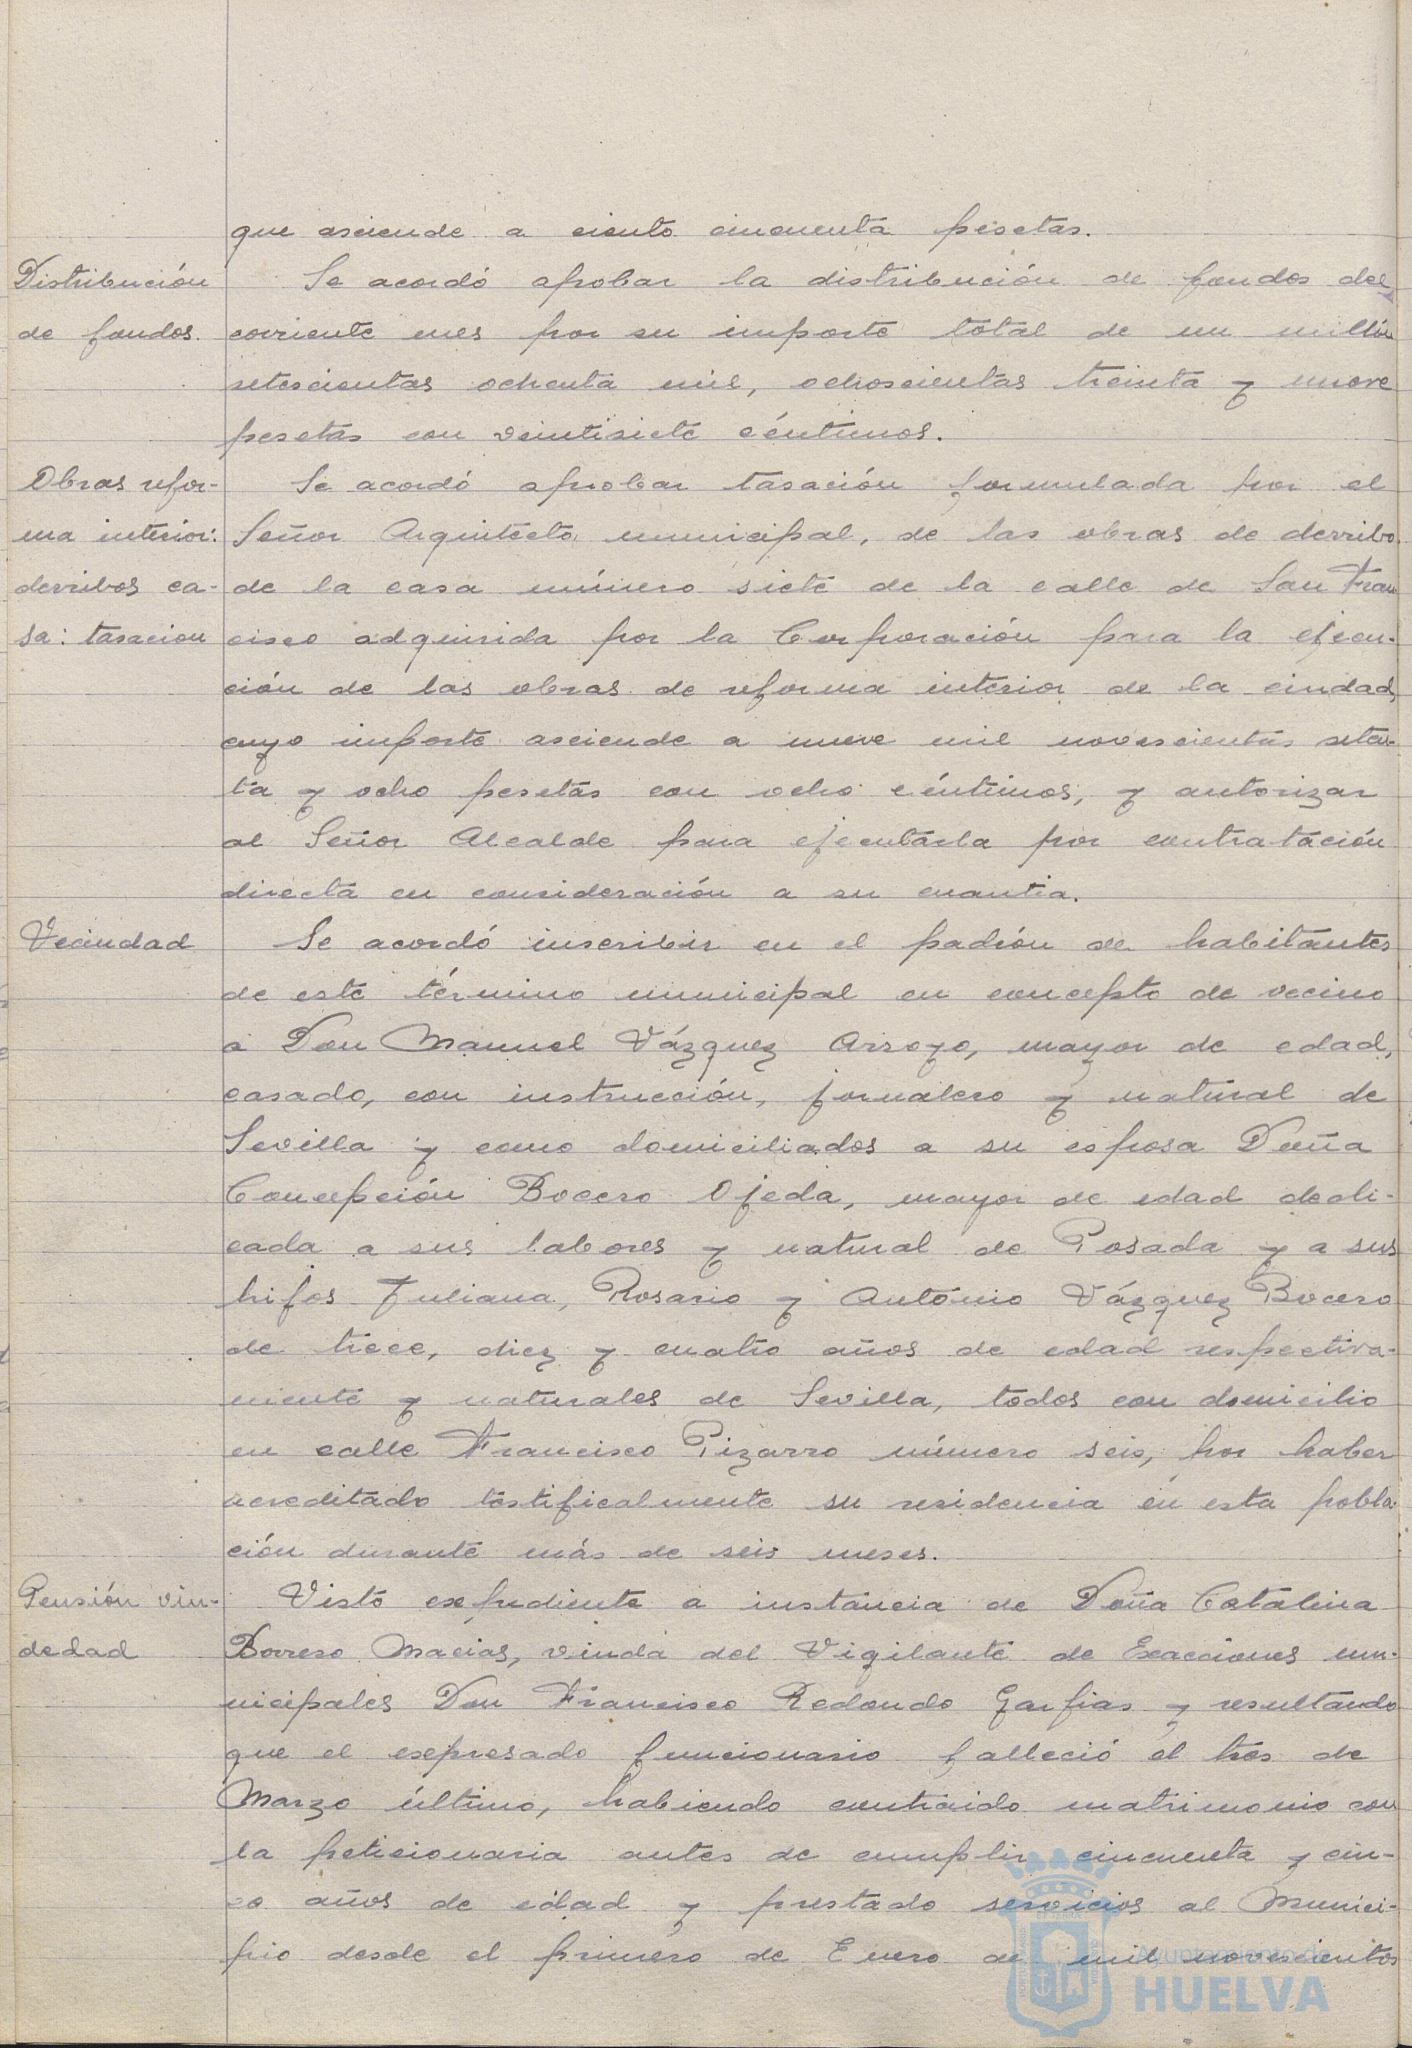 que asciende a ciento cincuenta pesetas.
Distribución
de fondos.
Se acordó aprobar la distribución de fondos del
corriente mes por su importe total de un millón
setescientas ochenta mil, ochoscientas treinta y nueve
pesetas con veintisiete céntimos.
Obras refor-
ma interior:
derribos ca-
sa: tasacion
Se acordó aprobar tasación formulada por el
Señor Arquitecto municipal, de las obras de derribo
de la casa número siete de la calle de San Fran
cisco adquirida por la Corporación para la ejecu-
ción de las obras de reforma interior de la ciudad,
cuyo importe asciende a nueve mil novescientas seten-
ta y ocho pesetas con ocho céntimos, y autorizar
al Señor Alcalde para ejecutarla por contratación
directa en consideración a su cuantia.
Vecindad
Se acordó inscribir en el padrón de habitantes
de este término municipal en concepto de vecino
a Don Manuel Vázquez Arroyo, mayor de edad,
casado, con instrucción, jornalero y natural de
Sevilla y como domiciliados a su esposa Doña
Concepción Bocero Ojeda, mayor de edad dedi-
cada a sus labores y natural de Posada y a sus
hijos Juliana, Rosario y António Vázquez Bocero
de trece, diez y cuatro años de edad respectiva-
mente y naturales de Sevilla, todos con domicilio
en calle Francisco Pizarro número seis, por haber
acreditado testificalmente su residencia en esta pobla
ción durante más de seis meses.
Pensión viu-
dedad
Visto expediente a instancia de Doña Catalina
Borrero Macias, viuda del Vigilante de Exacciones mu-
nicipales Don Francisco Redondo Garfias y resultando
que el expresado funcionario falleció el tres de
Marzo último, habiendo contraido matrimonio con
la peticionaria antes de cumplir cincuenta y cin-
co años de edad y prestado servicios al Munici-
pio desde el primero de Enero de mil novescientos
Ayuntamiento de
HUELVA